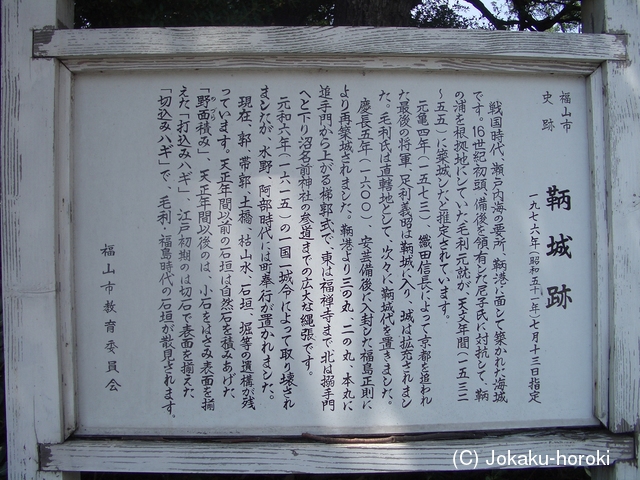 福山市
史跡
鞆城跡
一九七六年(昭和五十一年)七月十三日指定
戦国時代、瀬戸内海の要所、鞆港に面して築かれた海城
です。16世紀初頭、備後を領有した尼子氏に対抗して、鞆
の浦を根拠地にしていた毛利元就が天文年間(一五三二
～五五)に築城したと推定されています。
元亀四年(一五七三)織田信長によって京都を追われ
た最後の将軍、足利義昭は鞆城に入り、城は拡充されまし
た。毛利氏は直轄地として、次々に鞆城代を置きました。
慶長五年(一六〇〇)安芸備後に入封した福島正則に
より再築城されました。鞆港より三の丸、二の丸、本丸に
追手門から上がる梯郭式で、東は福禅寺まで北は搦手門
へと下り沼名前神社の参道までの広大な縄張です。
元和六年(一六一五)の一国一城令によって取り壊され
ましたが、水野、阿部時代には町奉行が置かれました。
現在、郭、帯郭、土橋、枯山水、石垣、堀等の遺構が残
っています。天正年間以前の石垣は自然石を積みあげた
「野面積み」、天正年間以後のは、小石をはさみ表面を揃
のづら
えた「打込みハギ」、江戸初期のは切石で表面を揃えた
「切込みハギ」で、毛利・福島時代の石垣が散見されます。
福山市教育委員会
(C) Jokaku-horoki